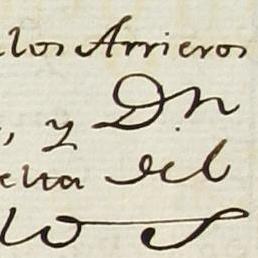 los Arrieros
, y Dn
elta del
lo s